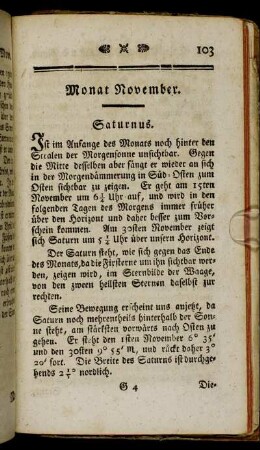 103
Monat November.
Saturnus.
Ist im Anfange des Monats noch hinter den
Stralen der Morgensonne unsichtbar. Gegen
die Mitte desselben aber fängt er wieder an sich
in der Morgendämmerung in Süd-Osten zum
Osten sichtbar zu zeigen. Er geht am 15ten
November um 6¼ Uhr auf, und wird in den
folgenden Tagen des Morgens immer früher
über den Horizont und daher besser zum Vor-
schein kommen. Am 30sten November zeigt
sich Saturn um 5¼ Uhr über unserm Horizont.
Der Saturn steht, wie sich gegen das Ende
des Monats, da die Fixsterne um ihn sichtbar wer-
den, zeigen wird, im Sternbilde der Waage,
von den zween hellsten Sternen daselbst zur
rechten.
Seine Bewegung erscheint uns anjetzt, da
Saturn noch mehrentheils hinterhalb der Son-
ne steht, am stärksten vorwärts nach Osten zu
gehen. Er steht den 1sten November 6° 35'
und den 30sten 9° 55' m, und rückt daher 3°
20' fort. Die Breite des Saturns ist durchge-
hends nordlich.
G 4 Die-